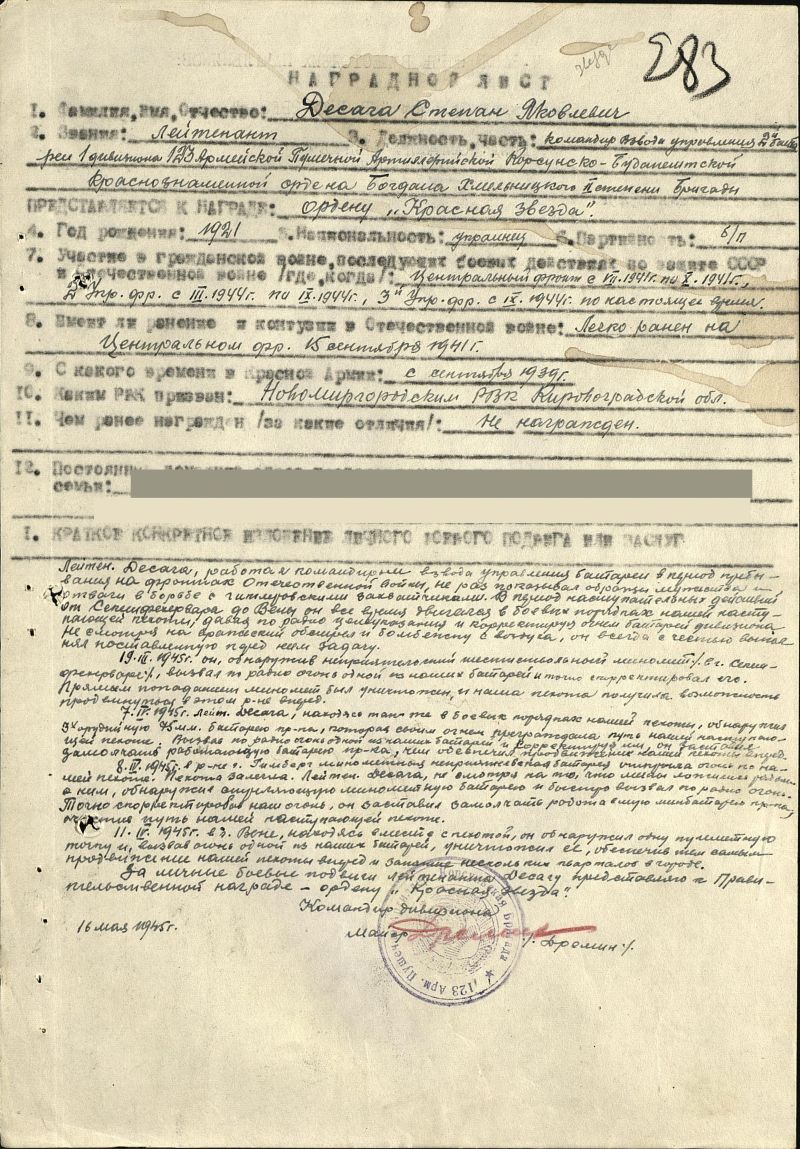 283
НАГРАДНОЙ ЛИСТ
1. Фамилия, Имя, Отчество: Десага Степан Яковлевич
2. Звания: Лейтенант 3. Должность, часть: командир взвода управления 2й бата
реи 1 дивизиона 123 Армейской Пушечной Артиллерийской Корсунско-Будапештской
Краснознаменной ордена Богдана Хмельницкого II степени бригады
ПРЕДСТАВЛЯЕТСЯ К НАГРАДЕ: ордену „Красная звезда".
4. Год рождения: 1921 5. Национальность: украинец 6. Партийность: б/п
7. Участие в гражданской войне, последующих боевых действиях по защите СССР
и отечественной войне /где, когда/: Центральный фронт с VII.1941г. по X.1941г.,
2й Укр. фр. с III.1944г. по IX.1944г., 3й Укр. фр. с IX.1944г. по настоящее время.
8. Имеет ли ранение и контузии в Отечественной войне: Легко ранен на
Центральном фр. 15 сентября 1941г.
9. С какого времени в Красной Армии: с сентября 1939г.
10. Каким РВК призван: Новомиргородским РВК Кировоградской обл.
11. Чем ранее награжден /за какие отличия/: Не награжден.
12. Постоянный
семьи:
I. КРАТКОЕ КОНКРЕТНОЕ ИЗЛОЖЕНИЕ ЛИЧНОГО БОЕВОГО ПОДВИГА ИЛИ ЗАСЛУГ
Лейтен. Десага, работая командиром взвода управления батареи в период пребы-
вания на фронтах Отечественной войны, не раз показывал образцы мужества и
отваги в борьбе с гитлеровскими захватчиками. В период наступательных действий
от Секешфехервара до Вены он все время двигался в боевых порядках нашей насту-
пающей пехоты, давая по радио целеуказания и корректируя огнем батарей дивизиона.
Не смотря на вражеский обстрел и бомбежку с воздуха, он всегда с честью выпол-
нял поставленную перед ним задачу.
19.III.1945г. он, обнаружив неприятельский шестиствольный миномет /: в г. Секеш-
фехерваре :/, вызвал по радио огонь одной из наших батарей и точно скорректировал его.
Прямым попаданием миномет был уничтожен, и наша пехота получила возможность
продвинуться в этом р-не вперед.
7.IV.1945г. Лейт. Десага, находясь так же в боевых порядках нашей пехоты, обнаружил
3х орудийную 75мм. батарею пр-ка, которая своим огнем преграждала путь нашей наступаю-
щей пехоте. Вызвав по радио огонь одной из наших батарей и корректируя им, он заставил
замолчать работающую батарею пр-ка, чем обеспечил продвижение нашей пехоты вперед.
8.IV.1945г. в р-не г. Гимберг минометная неприятельская батарея открыла огонь по на-
шей пехоте. Пехота залегла. Лейтен. Десага, не смотря на то, что мины ложились рядом
с ним, обнаружил стреляющую минометную батарею и быстро вызвал по радио огонь.
Точно скорректировав наш огонь, он заставил замолчать работавшую минбатарею пр-ка,
очистив путь нашей наступающей пехоте.
11.IV.1945г. в г. Вене, находясь вместе с пехотой, он обнаружил одну пулеметную
точку и, вызвав огонь одной из наших батарей, уничтожил ее, обеспечив тем самым
продвижение нашей пехоты вперед и занятие нескольких кварталов в городе.
За личные боевые подвиги лейтенанта Десагу представляю к Прави-
тельственной награде – ордену „Красная звезда".
Командир дивизиона
16 мая 1945г. Майор /: Дремин :/
123 Арм. Пушеч Бригада